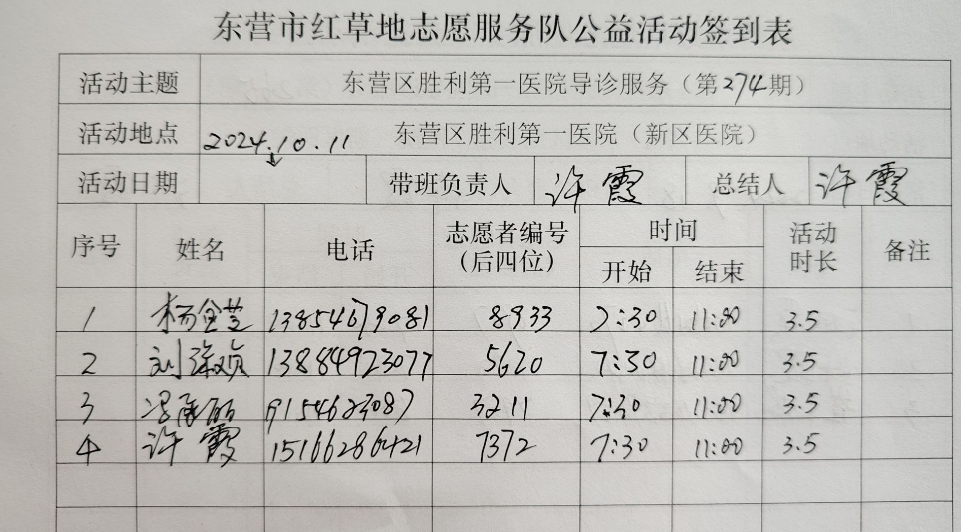 东营市红草地志愿服务队公益活动签到表
活动主题 东营区胜利第一医院导诊服务（第274期）
活动地点 东营区胜利第一医院（新区医院）
2024.10.11
活动日期 带班负责人 许霞 总结人 许霞
序号 姓名 电话 志愿者编号（后四位） 时间 开始 结束 活动时长 备注
1 杨金芝 13854679081 8933 7:30 11:00 3.5
2 刘 13884923077 5620 7:30 11:00 3.5
3 3211 7:30 11:00 3.5
4 许霞 15166286421 7372 7:30 11:00 3.5